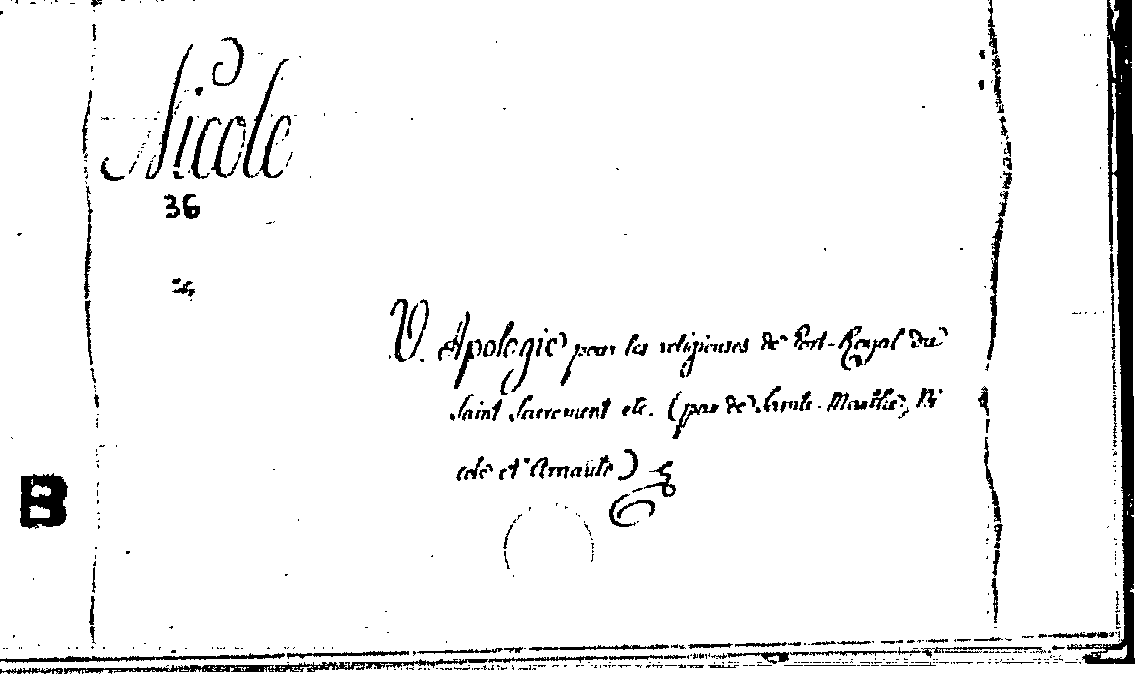 Nicole
36
V. Apologie pour les religieuses de Port-Royal du
Saint Sacrement etc. (par de Sainte-Marthe, Ni
cole et Arnauld)
B